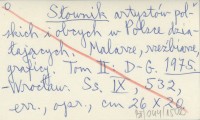 Słownik artystów pol-
skich i obcych w Polsce dzia-
łających. Malarze, rzeźbiarze,
graficy. Tom II: D-G. 1975.
Wrocław. Ss. IX, 532,
err., opr., cm 26 X 20.